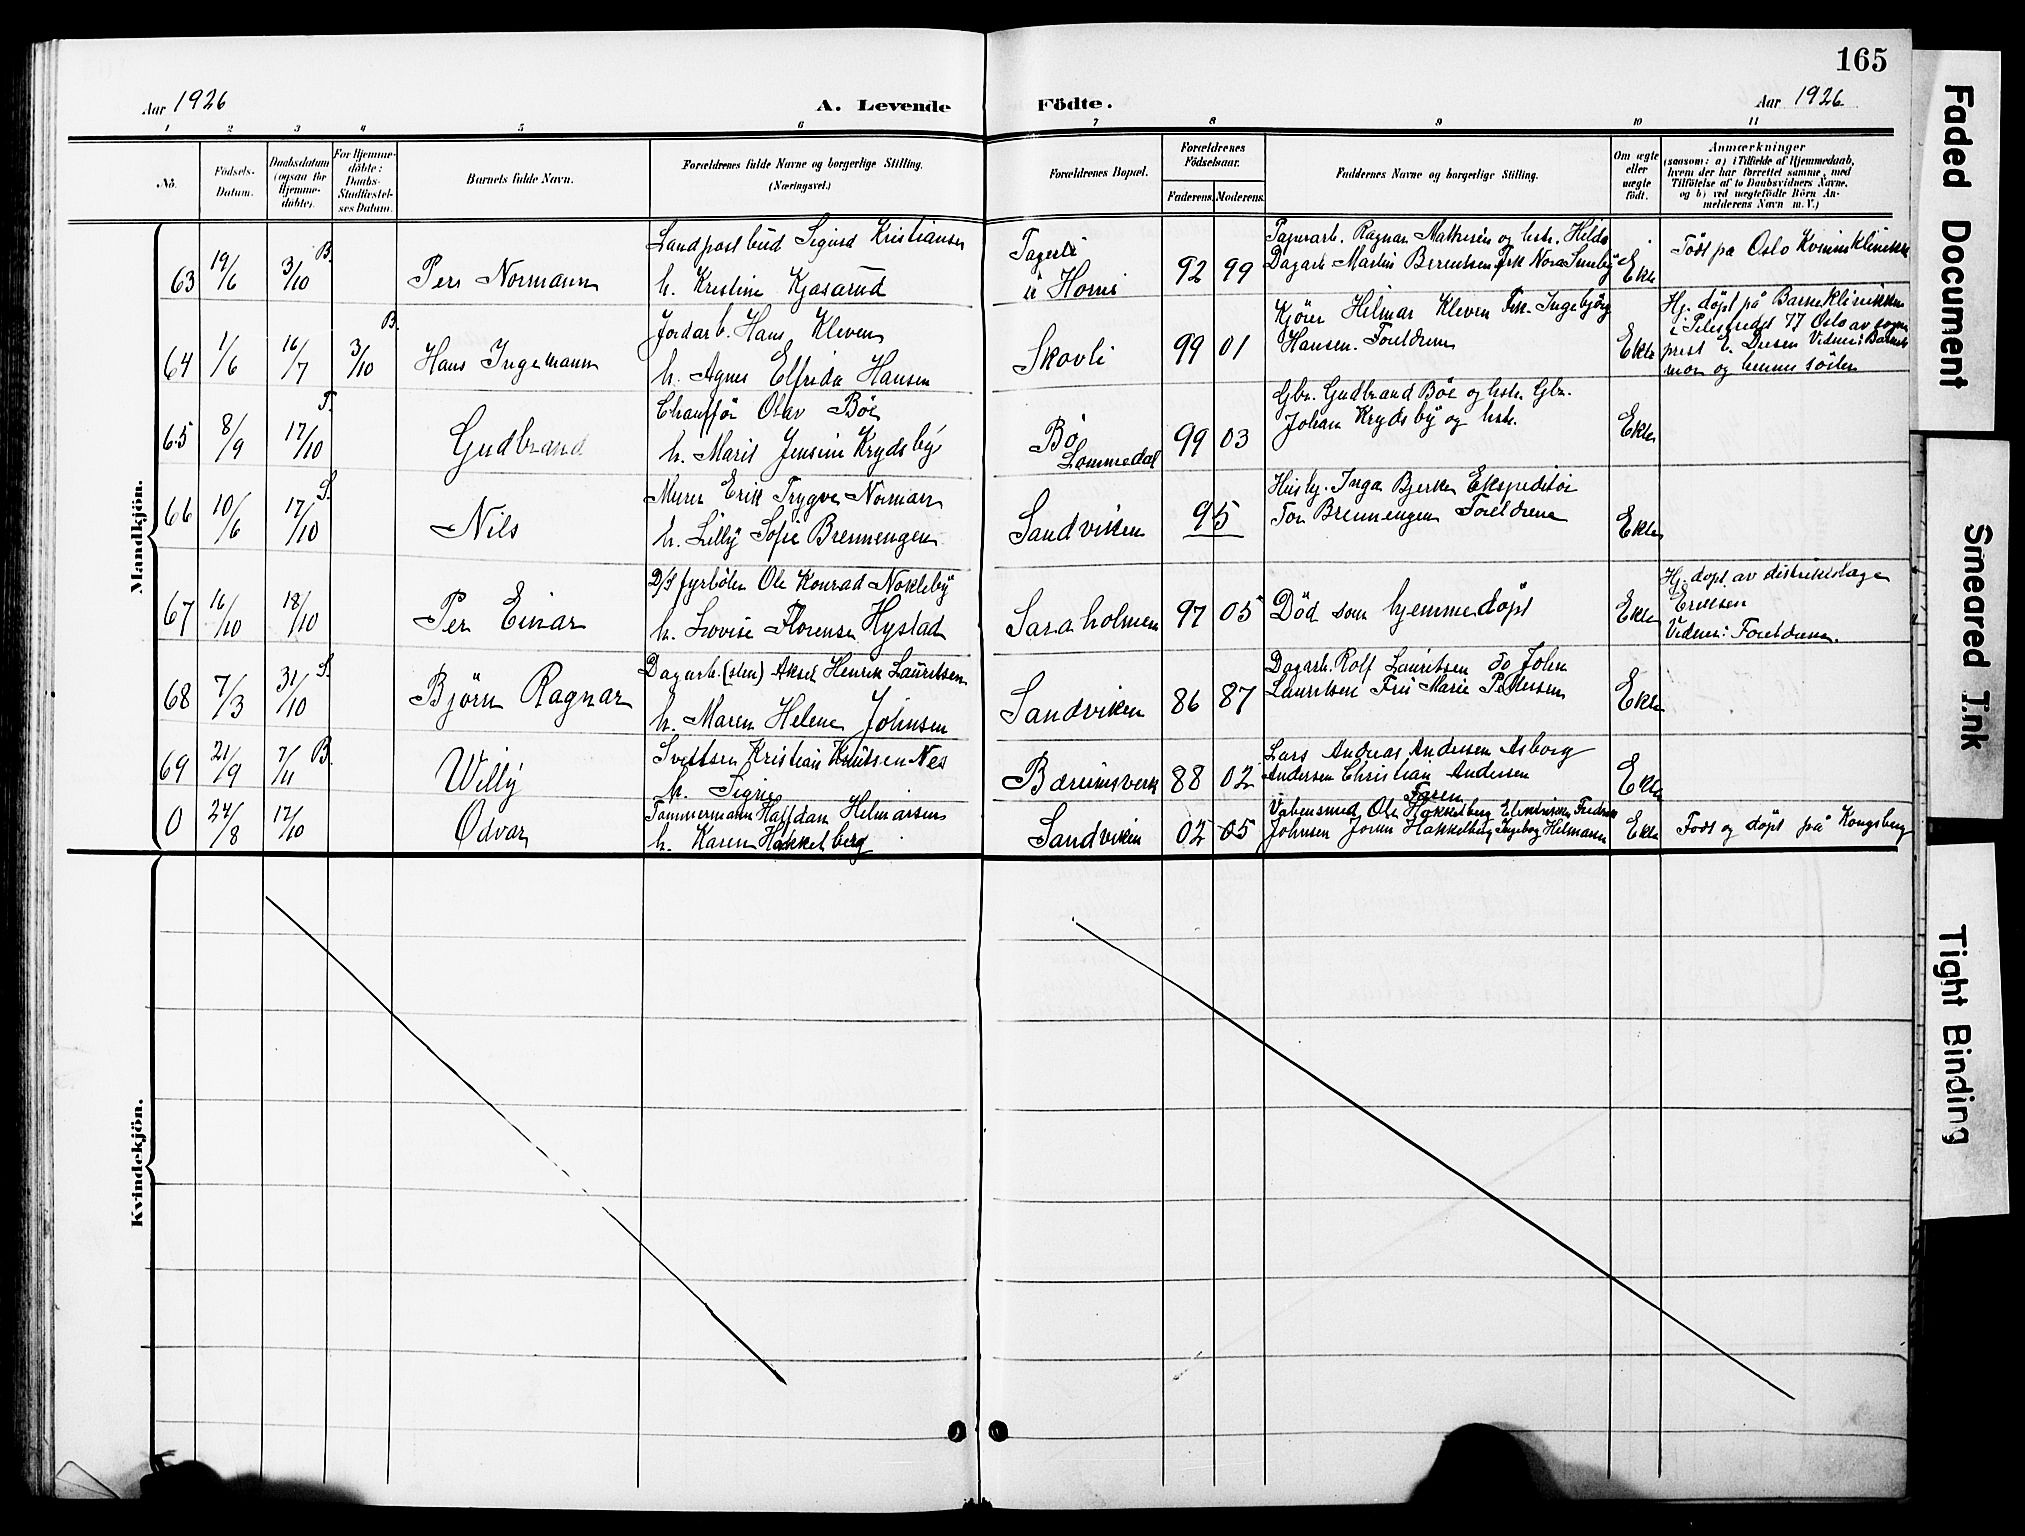 165
Aar 1926 A. Levende Födte. Aar 1926
1 2 3 4 5 6 7 8 9 10 11
No. Födsels-Datum. Daabsdatum (ogsaa for Hjemme-döbte). For Hjemme-döbte: Daabs-Stadfæstel-ses Datum. Barnets fulde Navn. Forældrenes fulde Navne og borgerlige Stilling. (Næringsvei.) Forældrenes Bopæl. Forældrenes Födselsaar. Faderens. Moderens. Faddernes Navne og borgerlige Stilling. Om ægte eller uægte födt. Anmærkninger
(saasom: a) i Tilfælde af Hjemmedaab,
hvem der har forrettet samme, med
Tilföielse af to Daabsvidners Navne,
og b) ved uægtefödte Börn An-
melderens Navn m. V.)
Mandkjön.
63 19/6 3/10 B. Per Normann Landpostbud Sigurd Kristiansen
h. Kristine Kjøsarud
u Horni 92 99 Papirarb. Ragnar Mathisen og hstr. Hilda
Dagarb Martin Berentsen Frk Nora Sundby Ekte Født på Oslo Kvinneklinikk
64 1/6 16/7 3/10 B. Hans Ingemann Jordarb. Hans Kleven
h. Agnes Elfrida Hansen
Skovli 99 01 Kjører Hilmar Kleven Frk. Ingebjørg
Hansen. Foreldrene Ekte Hj. døpt på Barneklinikken
i Pilestredet 77 Oslo av sogne
prest E. Diesen Vidner: Barnets
mor og hennes søster
65 8/9 17/10 T. Gudbrand Chauffør Olav Bøe
h. Marit Jensine Krydsby
Bø
Lommedal 99 03 Gbr. Gudbrand Bøe og hstr. Gbr.
Johan Krydsby og hstr. Ekte
66 10/6 17/10 S. Nils Murer Erik Trygve Norman
h. Lilly Sofie Brennengen
Sandviken 95 Husby. Inga Bjerke Ekspeditør
Tor Brennengen Foreldrene Ekte
67 16/10 18/10 Per Einar D/s fyrbøter Ole Konrad Nokleby
h. Lovise Florense Hystad
Saraholmen 97 05 Død som hjemmedøpt Ekte Hj. døpt av distriktslæge
Eriksen
Vidner: Foreldrene.
68 7/3 31/10 S. Bjørn Ragnar Dagarb. (sten) Aksel Henrik Lauritsen
h. Maren Helene Johnsen
Sandviken 86 87 Dagarb. Rolf Lauritsen Do John
Lauritsen Fru Marie Pettersen Ekte
69 21/9 7/11 B. Willy Kristian Knutsen Nes
h. Signe
Bærumsverk 88 02 Lars Andreas Andersen Asborg
Andersen Christian Andersen
Faren Ekte
0 24/8 17/10 Odvar Tømmermann Halfdan Helmarsen
h. Karen Hakkelberg
Sandviken 02 05 Våbensmed Ole Hakkelberg Elektriker Fredrik
Johnsen Jorun Hakkelberg Ingeborg Hilmarsen Ekte Født og døpt på Kongsberg
Kvindekjön.
Faded Document
Smeared Ink
Tight Binding